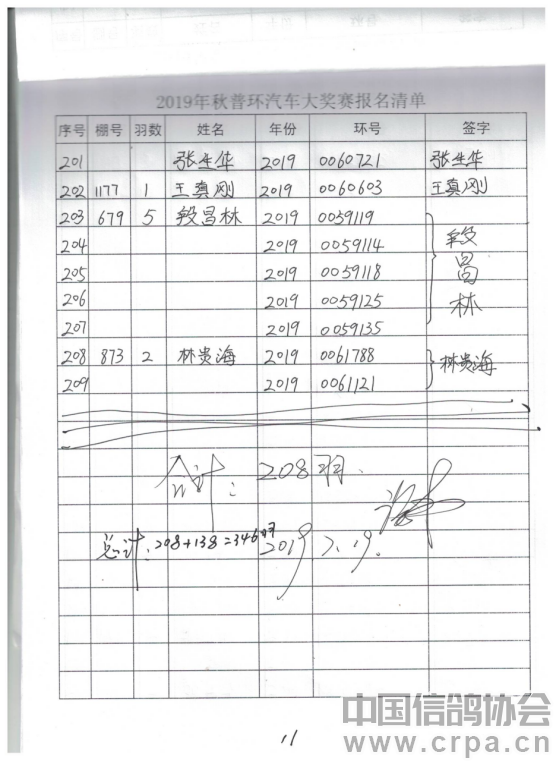 2019年秋普环汽车大奖赛报名清单
序号 棚号 羽数 姓名 年份 环号 签字
201 张生华 2019 0060721 张生华
202 1177 1 王真刚 2019 0060603 王真刚
203 679 5 段昌林 2019 0059119 段昌林
204 2019 0059114
205 2019 0059118
206 2019 0059125
207 2019 0059135
208 873 2 林贵海 2019 0061788 林贵海
209 2019 0061121
合计: 208羽.
总计: 208+138=346羽
2019.7.19.
中国信鸽协会
www.crpa.cn
11